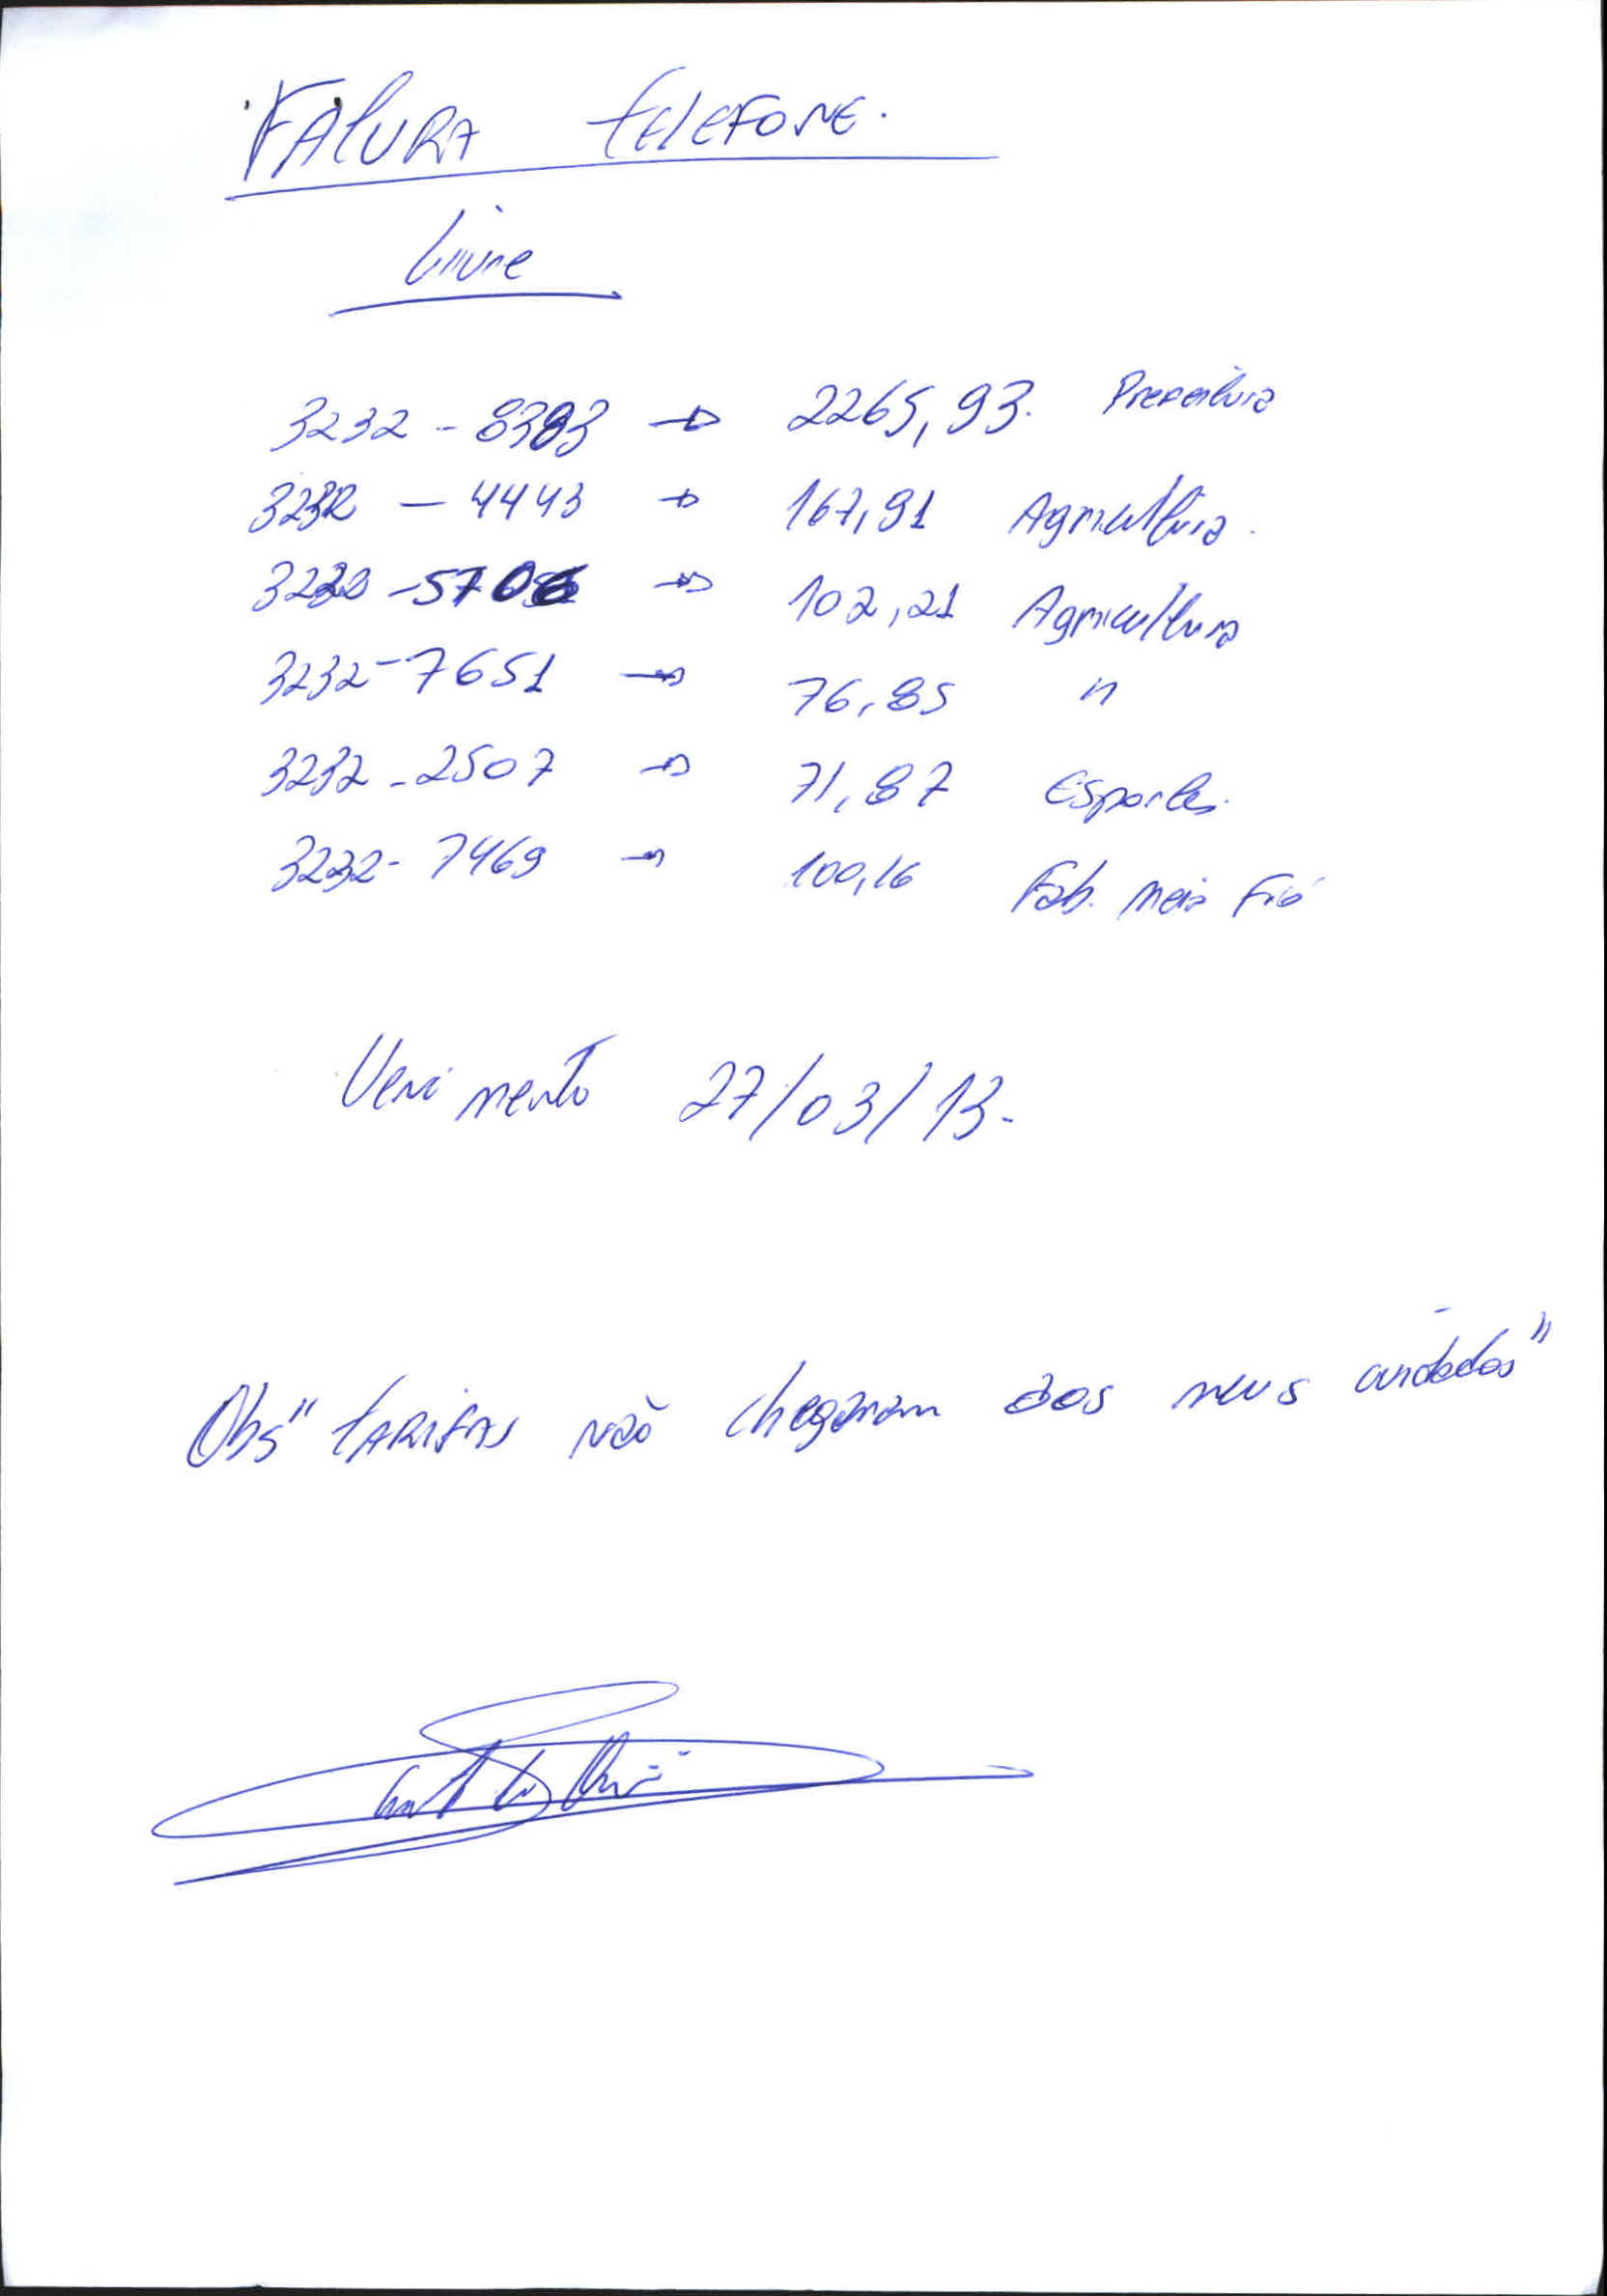 FATURA TELEFONE.
Livre
3232 - 8383 → 2265,93. Prefeitura
3232 - 4443 → 167,91 Agricultura.
3232 - 5706 → 102,21 Agricultura
3232 - 7651 → 76,85 "
3232 - 2507 → 71,87 Esportes.
3232 - 7469 → 100,16 Fab. Meio Fio
Vencimento 27/03/13-
Obs" TARIFAS não chegaram aos meus cuidados"